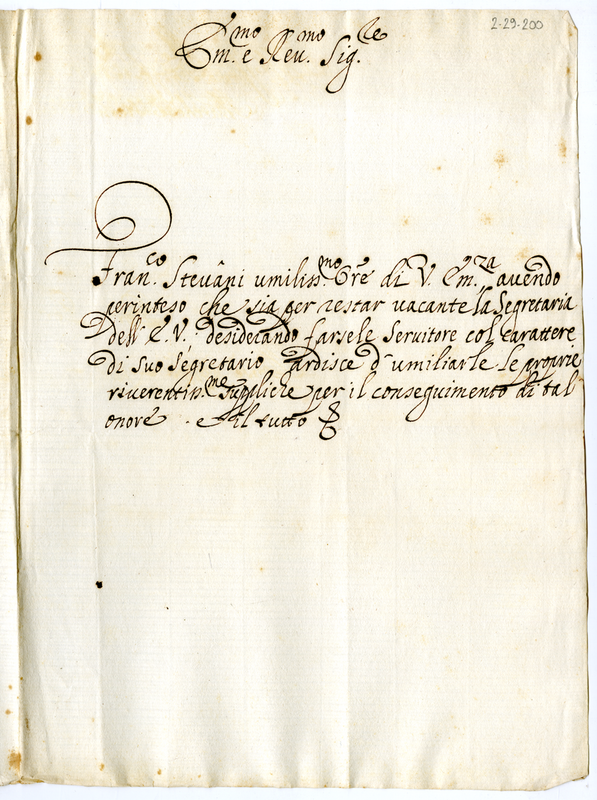 2-29-200
Em.mo e Rev.mo Sig.re
Fran.co Stevâni umiliss.mo Ore di V. Em.za avendo
perinteso che sia per restar vacante la Segretaria
dell' E.V., desiderando farsele Servitore col carattere
di suo Segretario ardisce d'umiliarle le proprie
riverentiss.me suppliche per il conseguimento di tal
onore. e il tutto